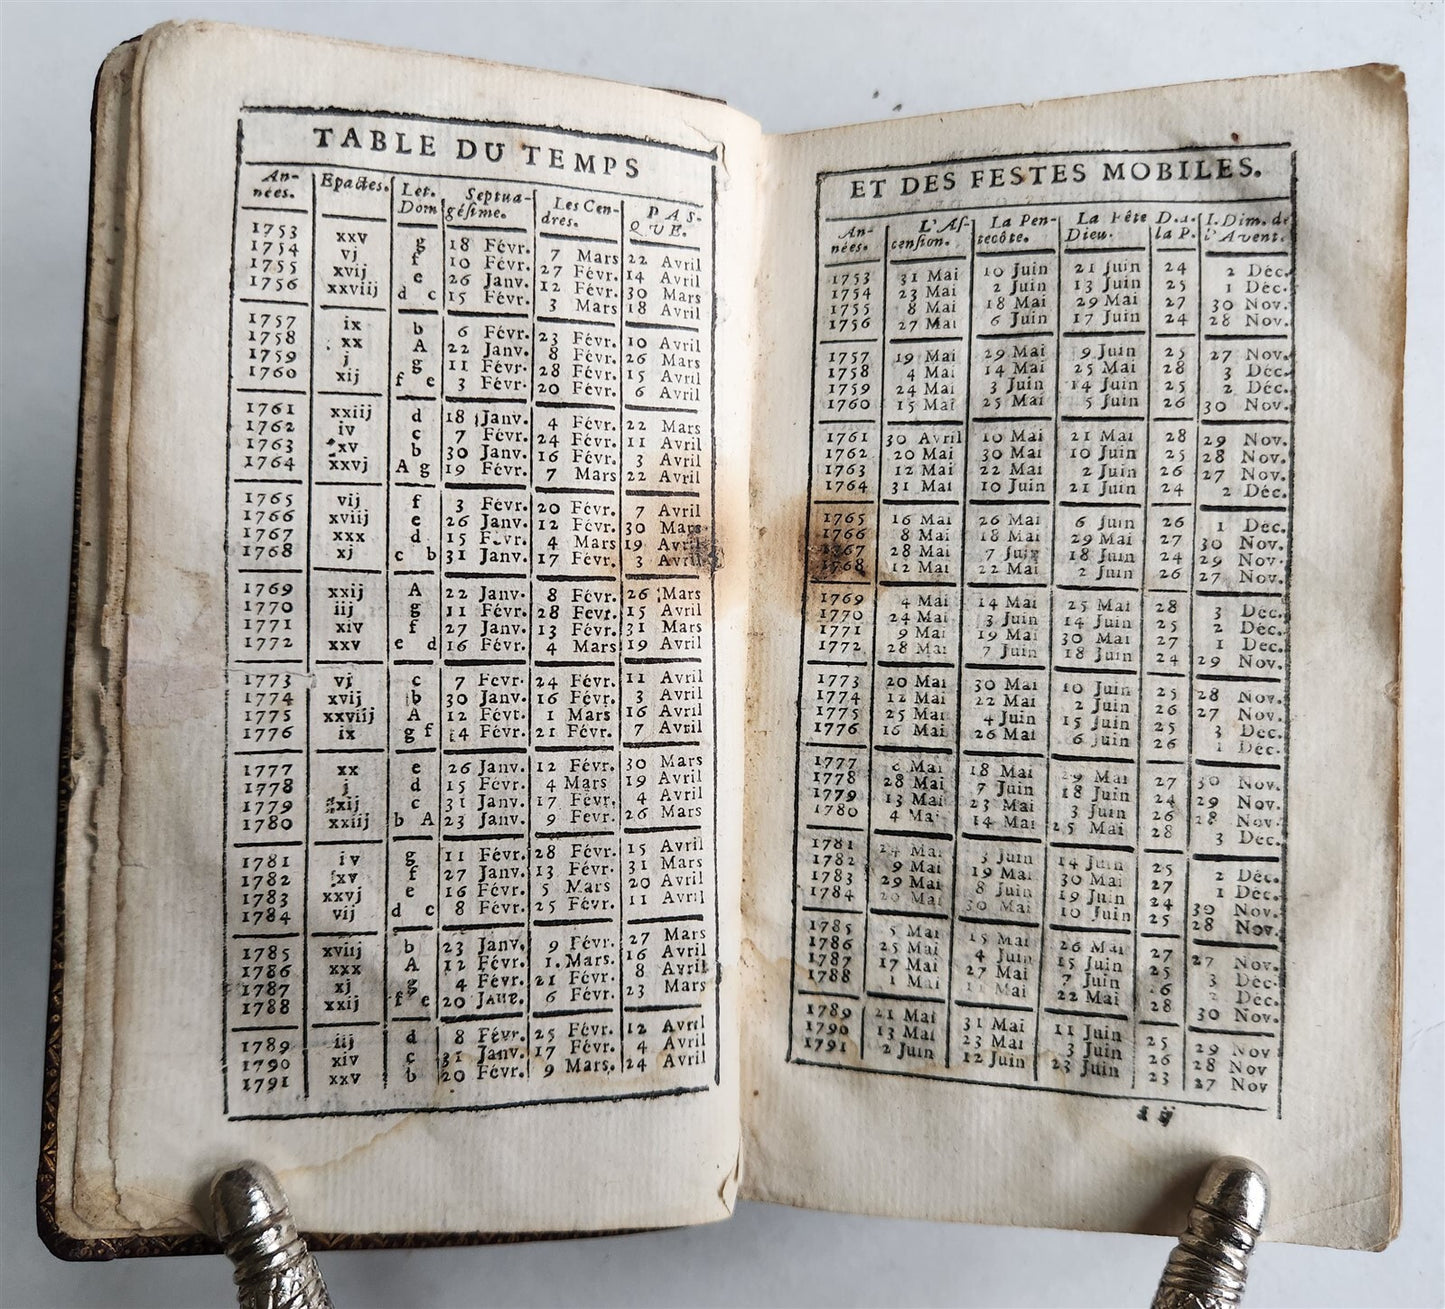 TABLE DU TEMPS
An-nées. Epactes. Let. Dom Septua-gésime. Les Cen-dres. PAS-QUE.
1753 xxv g 18 Févr. 7 Mars 22 Avril
1754 vj f 10 Févr. 27 Févr. 14 Avril
1755 xvij e 26 Janv. 12 Févr. 30 Mars
1756 xxviij d c 15 Févr. 3 Mars 18 Avril
1757 ix b 6 Févr. 23 Févr. 10 Avril
1758 xx A 22 Janv. 8 Févr. 26 Mars
1759 j g 11 Févr. 28 Févr. 15 Avril
1760 xij f e 3 Févr. 20 Févr. 6 Avril
1761 xxiij d 18 Janv. 4 Févr. 22 Mars
1762 iv c 7 Févr. 24 Févr. 11 Avril
1763 xv b 30 Janv. 16 Févr. 3 Avril
1764 xxvj A g 19 Févr. 7 Mars 22 Avril
1765 vij f 3 Févr. 20 Févr. 7 Avril
1766 xviij e 26 Janv. 12 Févr. 30 Mars
1767 xxx d 15 Févr. 4 Mars 19 Avril
1768 xj c b 31 Janv. 17 Févr. 3 Avril
1769 xxij A 22 Janv. 8 Févr. 26 Mars
1770 iij g 11 Févr. 28 Fevr. 15 Avril
1771 xiv f 27 Janv. 13 Févr. 31 Mars
1772 xxv e d 16 Févr. 4 Mars 19 Avril
1773 vj c 7 Fevr. 24 Févr. 11 Avril
1774 xvij b 30 Janv. 16 Févr. 3 Avril
1775 xxviij A 12 Févr. 1 Mars 16 Avril
1776 ix g f 4 Févr. 21 Févr. 7 Avril
1777 xx e 26 Janv. 12 Févr. 30 Mars
1778 j d 15 Févr. 4 Mars 19 Avril
1779 xij c 31 Janv. 17 Févr. 4 Avril
1780 xxiij b A 23 Janv. 9 Févr. 26 Mars
1781 iv g 11 Févr. 28 Févr. 15 Avril
1782 xv f 27 Janv. 13 Févr. 31 Mars
1783 xxvj e 16 Févr. 5 Mars 20 Avril
1784 vij d c 8 Févr. 25 Févr. 11 Avril
1785 xviij b 23 Janv. 9 Févr. 27 Mars
1786 xxx A 12 Févr. 1. Mars. 16 Avril
1787 xj g 4 Févr. 21 Févr. 8 Avril
1788 xxij f e 20 Janv. 6 Févr. 23 Mars
1789 iij d 8 Févr. 25 Févr. 12 Avril
1790 xiv c 31 Janv. 17 Févr. 4 Avril
1791 xxv b 20 Févr. 9 Mars. 24 Avril
ET DES FESTES MOBILES.
An-nées. L'As-cension. La Pen-tecôte. La Fête Dieu. la P. I. Dim. de l'Avent.
1753 31 Mai 10 Juin 21 Juin 24 2 Déc.
1754 23 Mai 2 Juin 13 Juin 25 1 Déc.
1755 8 Mai 18 Mai 29 Mai 27 30 Nov.
1756 27 Mai 6 Juin 17 Juin 24 28 Nov.
1757 19 Mai 29 Mai 9 Juin 25 27 Nov.
1758 4 Mai 14 Mai 25 Mai 28 3 Déc.
1759 24 Mai 3 Juin 14 Juin 25 2 Déc.
1760 15 Mai 25 Mai 5 Juin 26 30 Nov.
1761 30 Avril 10 Mai 21 Mai 28 29 Nov.
1762 20 Mai 30 Mai 10 Juin 25 28 Nov.
1763 12 Mai 22 Mai 2 Juin 26 27 Nov.
1764 31 Mai 10 Juin 21 Juin 24 2 Déc.
1765 16 Mai 26 Mai 6 Juin 26 1 Dec.
1766 8 Mai 18 Mai 29 Mai 27 30 Nov.
1767 28 Mai 7 Juin 18 Juin 24 29 Nov.
1768 12 Mai 22 Mai 2 Juin 26 27 Nov.
1769 4 Mai 14 Mai 25 Mai 28 3 Dec.
1770 24 Mai 3 Juin 14 Juin 25 2 Déc.
1771 9 Mai 19 Mai 30 Mai 27 1 Dec.
1772 28 Mai 7 Juin 18 Juin 24 29 Nov.
1773 20 Mai 30 Mai 10 Juin 25 28 Nov.
1774 12 Mai 22 Mai 2 Juin 26 27 Nov.
1775 25 Mai 4 Juin 15 Juin 25 3 Déc.
1776 16 Mai 26 Mai 6 Juin 26 1 Déc.
1777 Mai 18 Mai 29 Mai 27 30 Nov.
1778 28 Mai 7 Juin 18 Juin 24 29 Nov.
1779 13 Mai 23 Mai 3 Juin 26 28 Nov.
1780 4 Mai 14 Mai 25 Mai 28 3 Dec.
1781 24 Mai 3 Juin 14 Juin 25 2 Déc.
1782 9 Mai 19 Mai 30 Mai 27 1 Déc.
1783 29 Mai 8 Juin 19 Juin 24 30 Nov.
1784 20 Mai 30 Mai 10 Juin 25 28 Nov.
1785 5 Mai 15 Mai 26 Mai 27 27 Nov.
1786 25 Mai 4 Juin 15 Juin 25 3 Déc.
1787 17 Mai 27 Mai 7 Juin 26 2 Déc.
1788 1 Mai 11 Mai 22 Mai 28 30 Nov.
1789 21 Mai 31 Mai 11 Juin 25 29 Nov
1790 13 Mai 23 Mai 3 Juin 26 28 Nov
1791 2 Juin 12 Juin 23 Juin 23 27 Nov